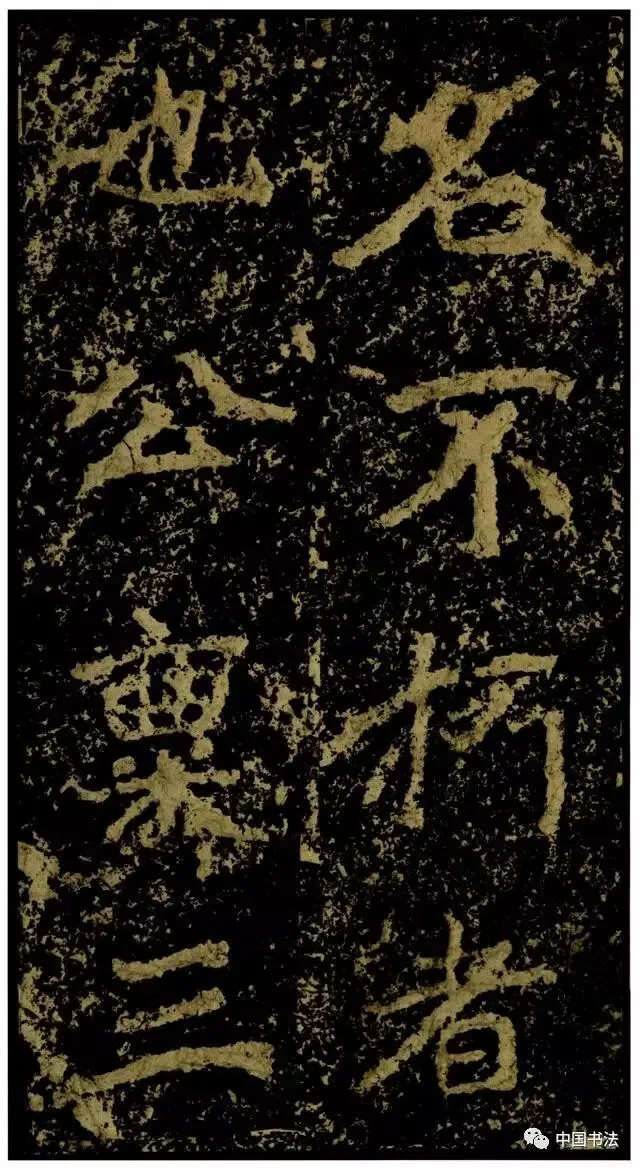 名不朽者
也公禀三
中国书法